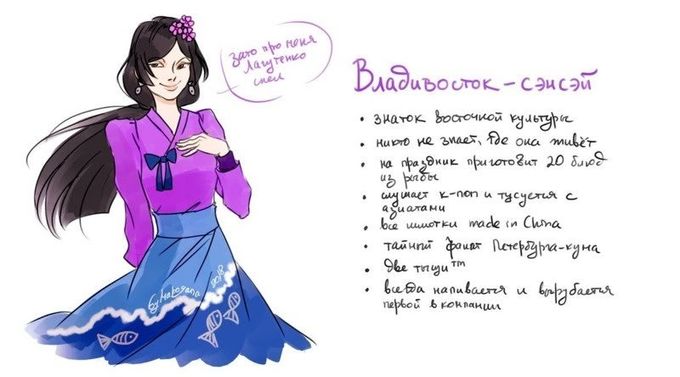 зато про меня
Лагутенко
спел
Владивосток – сэнсэй
• знаток восточной культуры
• никто не знает, где она живёт
• на праздник приготовит 20 блюд
из рыбы
• слушает к-поп и тусуется с
азиатами
• все шмотки made in China
• тайный фанат Петербурга-куна
• две тыщи™
• всегда напивается и вырубается
первой в компании
by Maposana
2018